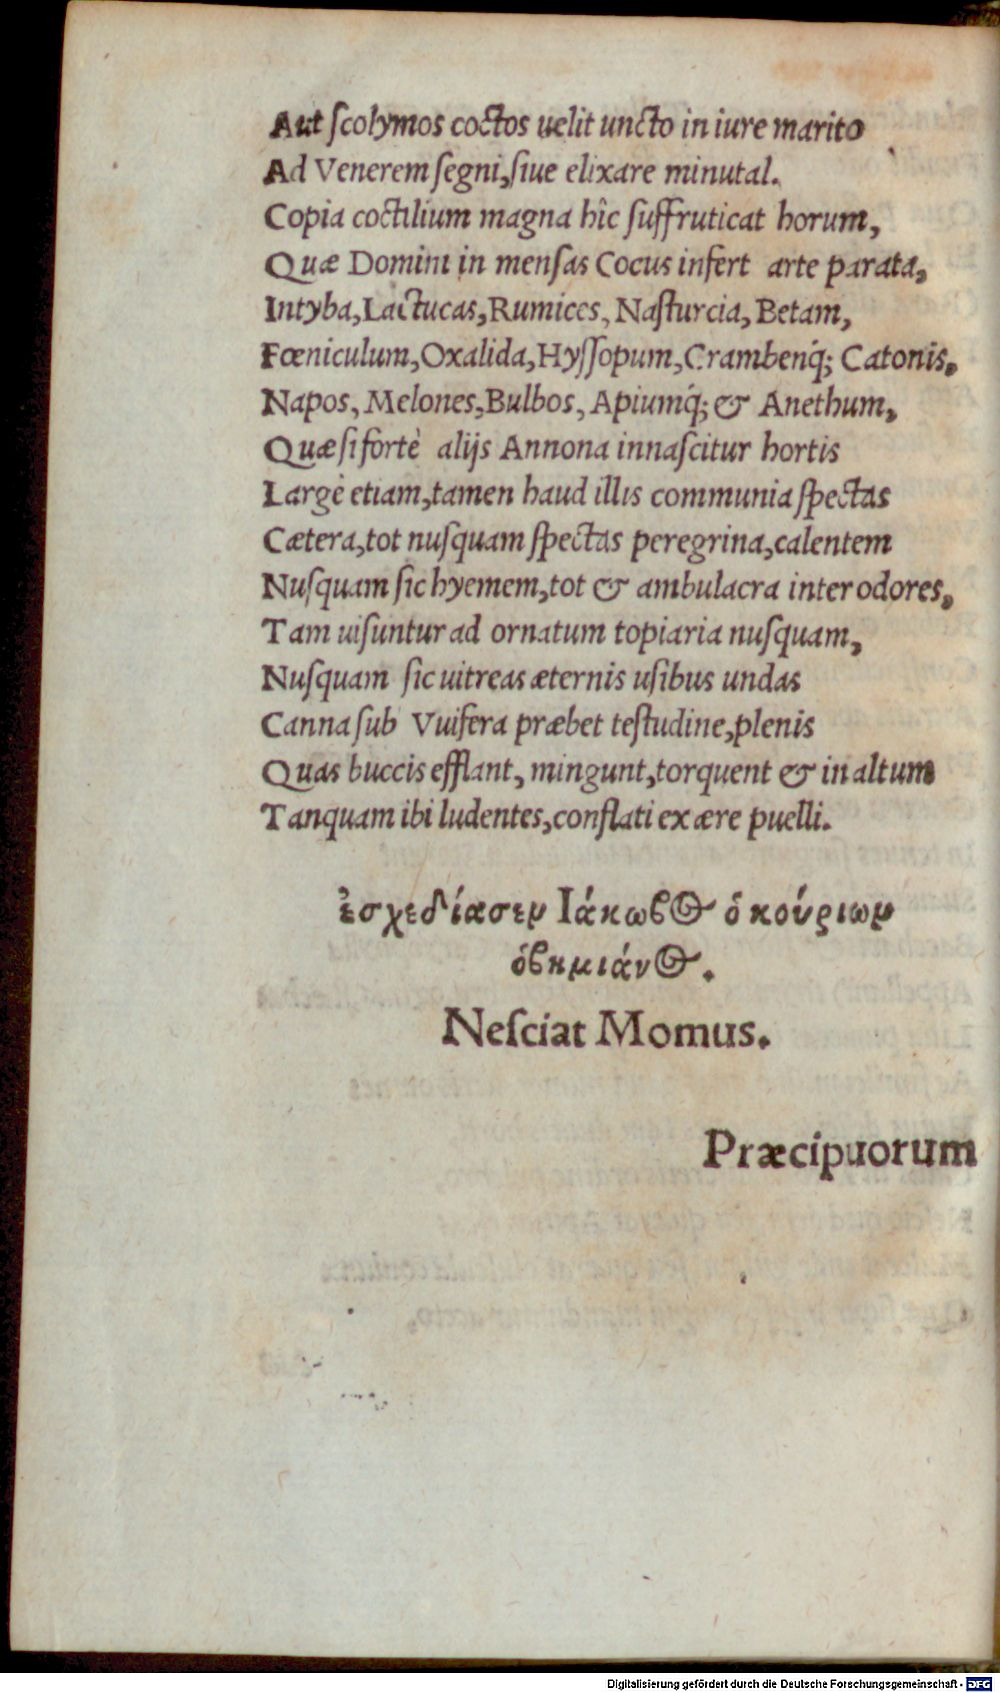 Aut ſcolymos coctos uelit uncto in iure marito
Ad Venerem ſegni, ſiue elixare minutal.
Copia coctilium magna hîc ſuffruticat horum,
Quæ Domini in menſas Cocus infert arte parata,
Intyba, Lactucas, Rumices, Naſturcia, Betam,
Fœniculum, Oxalida, Hyſſopum, Crambenq́; Catonis,
Napos, Melones, Bulbos, Apiumq́; & Anethum,
Quæ ſi fortè alijs Annona innaſcitur hortis
Largè etiam, tamen haud illis communia ſpectas
Cætera, tot nuſquam ſpectas peregrina, calentem
Nuſquam ſic hyemem, tot & ambulacra inter odores,
Tam uiſuntur ad ornatum topiaria nuſquam,
Nuſquam ſic uitreas æternis uſibus undas
Canna ſub Vuifera præbet teſtudine, plenis
Quas buccis efflant, mingunt, torquent & in altum
Tanquam ibi ludentes, conflati ex ære puelli.
ἐσχεδίασεν Ιάκωβος ὁ κούριων
ὁβημιάνος.
Neſciat Momus.
Præcipuorum
Digitalisierung gefördert durch die Deutsche Forschungsgemeinschaft - DFG